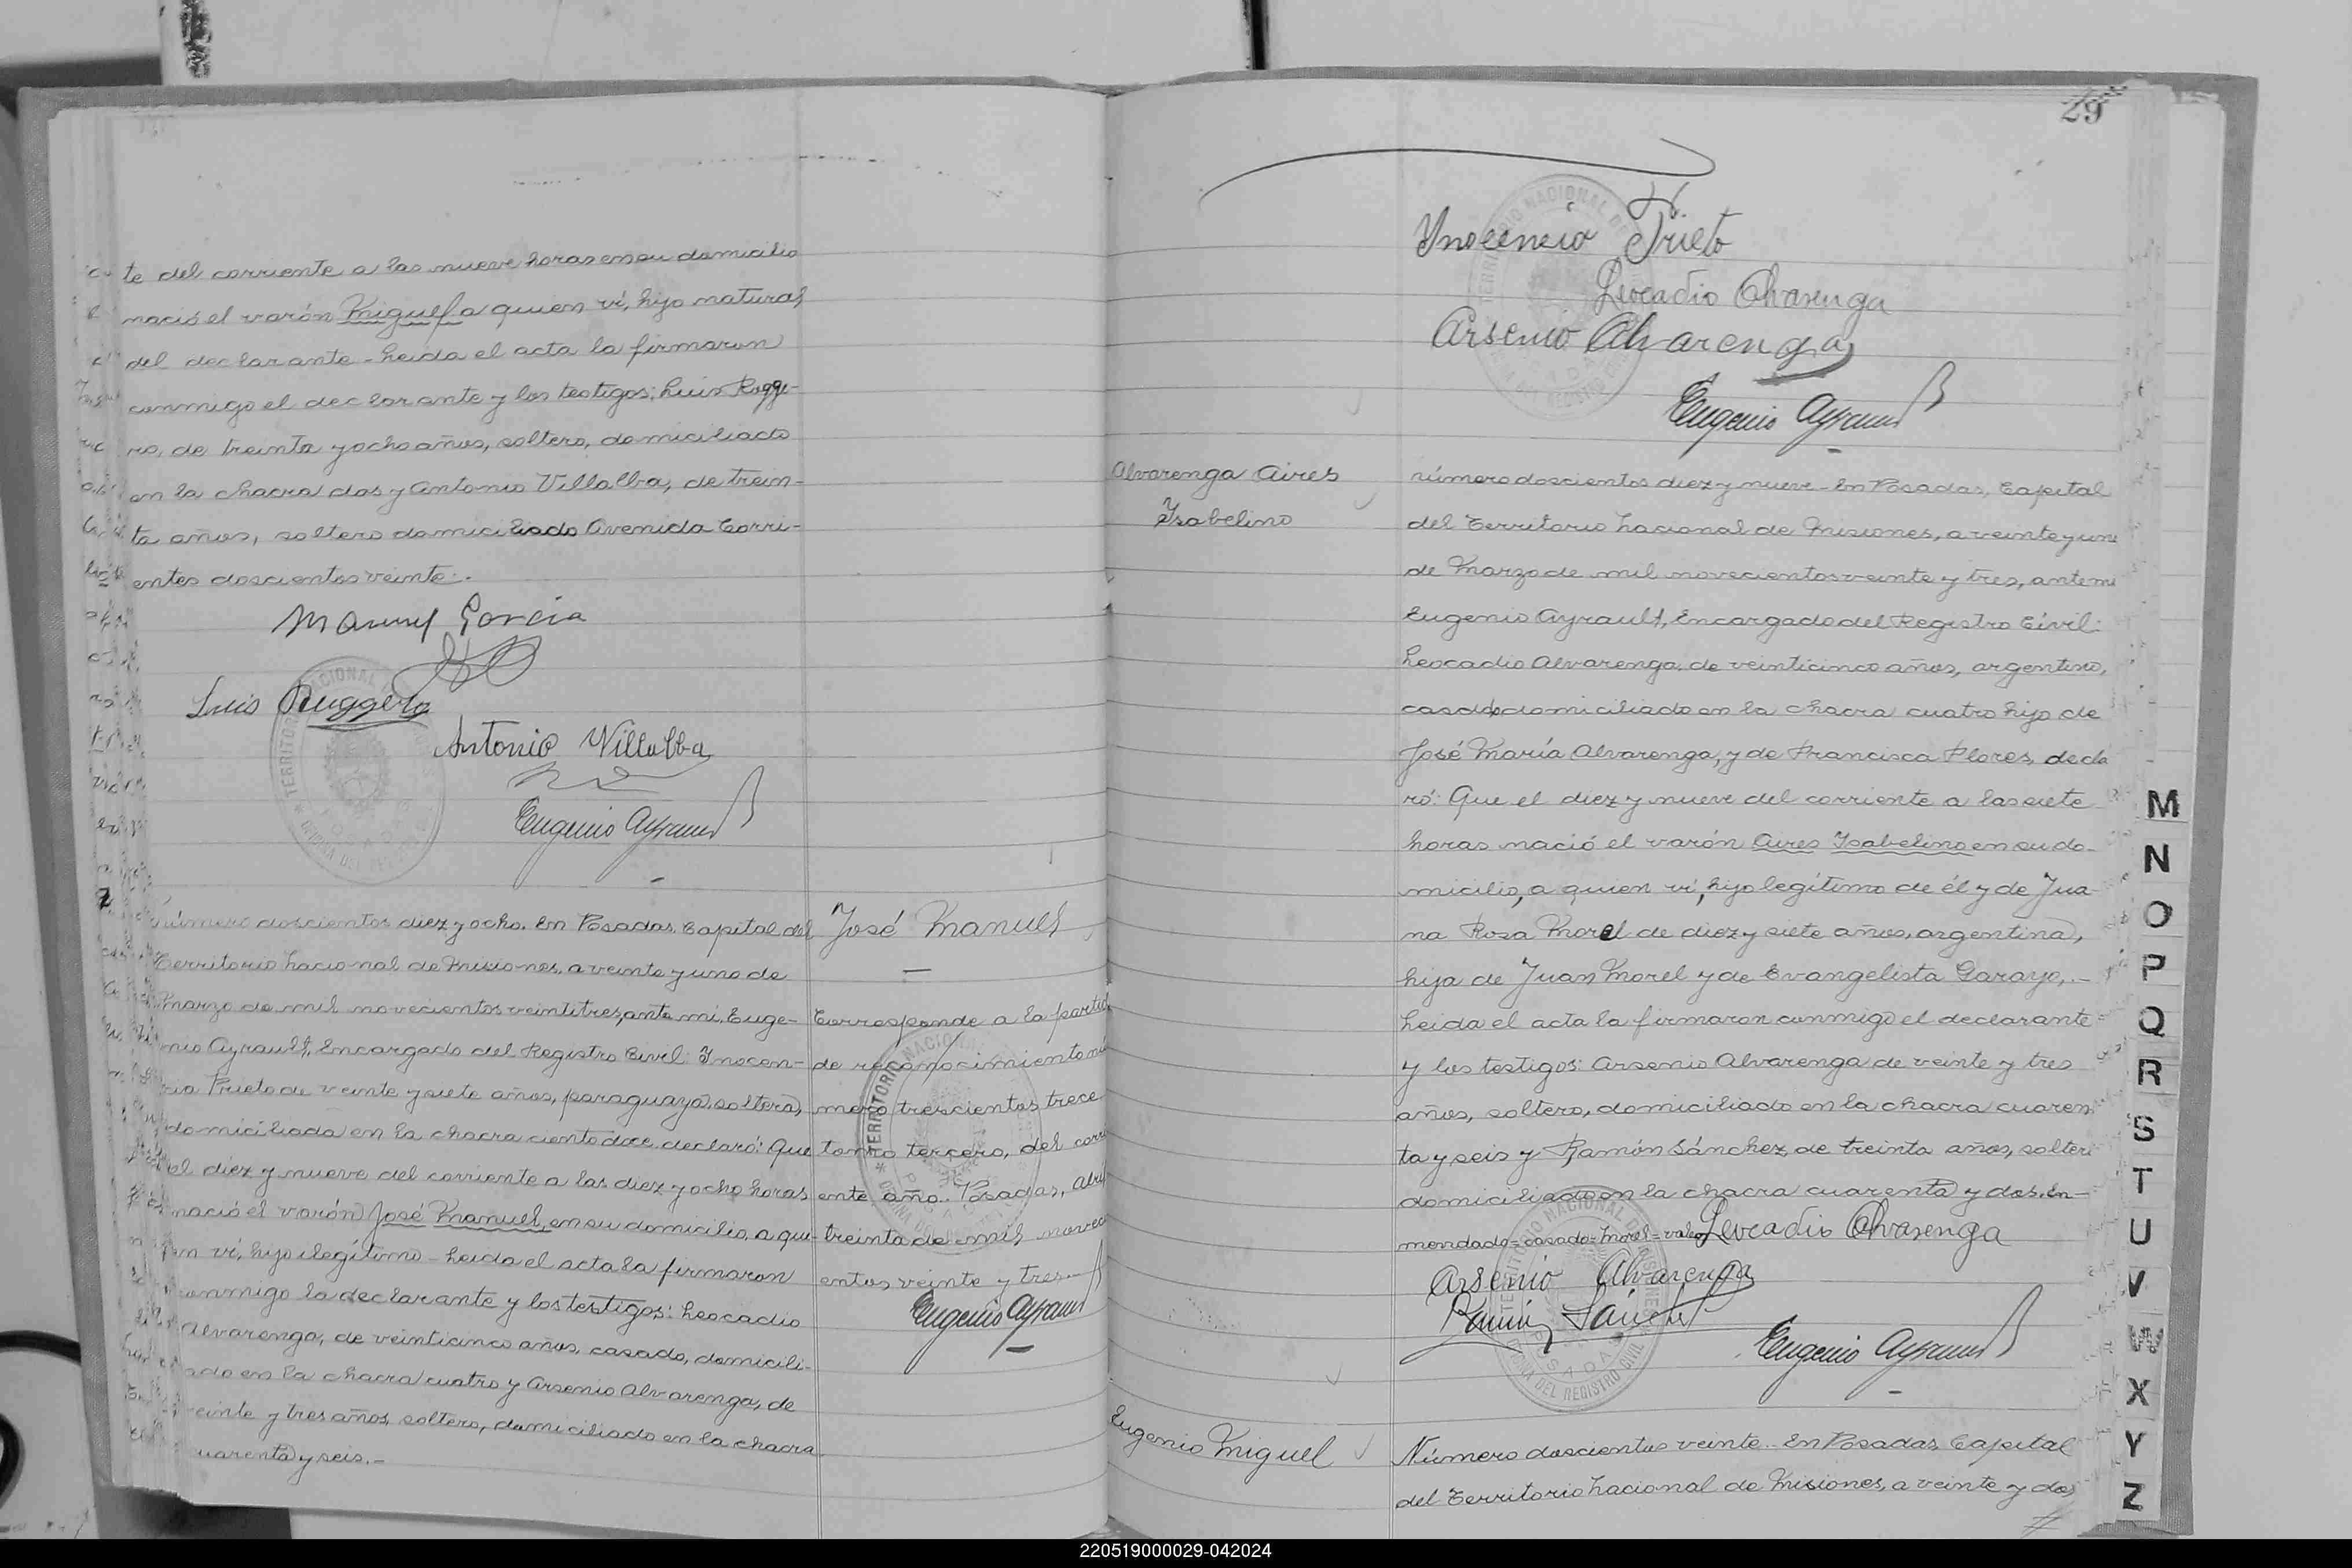 te del corriente a las nueve horas en su domicilio
nació el varón Miguel a quien ví, hijo natural
del declarante - Leida el acta la firmaron
conmigo el declarante y los testigos; Luis Rugge-
ro, de treinta y ocho años, soltero, domiciliado
en la chacra dos y Antonio Villalba, de trein-
ta años, soltero domiciliado Avenida Corri-
entes doscientos veinte.
Manuel García
Luis Ruggero
Antonio Villalba
Eugenio Ayrault
número doscientos diez y ocho. En Posadas Capital del
Territorio Nacional de Misiones, a veinte y uno de
Marzo de mil novecientos veintitres, ante mi, Euge-
nio Ayrault, Encargado del Registro Civil: Inocen-
cia Prieto de veinte y siete años, paraguaya, soltera,
domiciliada en la chacra ciento doce, declaró: Que
el diez y nueve del corriente a las diez y ocho horas
nació el varón José Manuel, en su domicilio, a qui-
en ví, hijo ilegítimo - Leida el acta la firmaron
conmigo la declarante y los testigos: Leocadio
Alvarenga, de veinticinco años, casado, domicili-
ado en la chacra cuatro y Arsenio Alvarenga, de
veinte y tres años, soltero, domiciliado en la chacra
cuarenta y seis.-
José Manuel
Corresponde a la partid
de reconocimiento nú
mero trescientos trece
tomo tercero, del corri
ente año. Posadas, Abril
treinta de mil noveci
entos veinte y tres.-
Eugenio Ayrault
29
Inocencia Prieto
Leocadio Alvarenga
Arsenio Alvarenga
Eugenio Ayrault
Alvarenga Aires
Isabelino
número doscientos diez y nueve - En Posadas, Capital
del Territorio Nacional de Misiones, a veinte y uno
de Marzo de mil novecientos veinte y tres, ante mi
Eugenio Ayrault, Encargado del Registro Civil:
Leocadio Alvarenga, de veinticinco años, argentino,
casado domiciliado en la chacra cuatro hijo de
José María Alvarenga, y de Francisca Flores, decla
ró: Que el diez y nueve del corriente a las siete
horas nació el varón Aires Isabelino en su do-
micilio, a quien ví, hijo legítimo de él y de Jua-
na Rosa Morel de diez y siete años, argentina,
hija de Juan Morel y de Evangelista Garayo,-
Leida el acta la firmaron conmigo el declarante
y los testigos: Arsenio Alvarenga de veinte y tres
años, soltero, domiciliado en la chacra cuaren
ta y seis y Ramón Sánchez, de treinta años, soltero
domiciliado en la chacra cuarenta y dos. En-
mendado=casado=Morel=vale
Leocadio Alvarenga
Arsenio Alvarenga
Ramón Sánchez
Eugenio Ayrault
Eugenio Miguel
Número doscientos veinte. En Posadas Capital
del Territorio Nacional de Misiones, a veinte y dos
M
N
O
P
Q
R
S
T
U
V
W
X
Y
Z
220519000029-042024